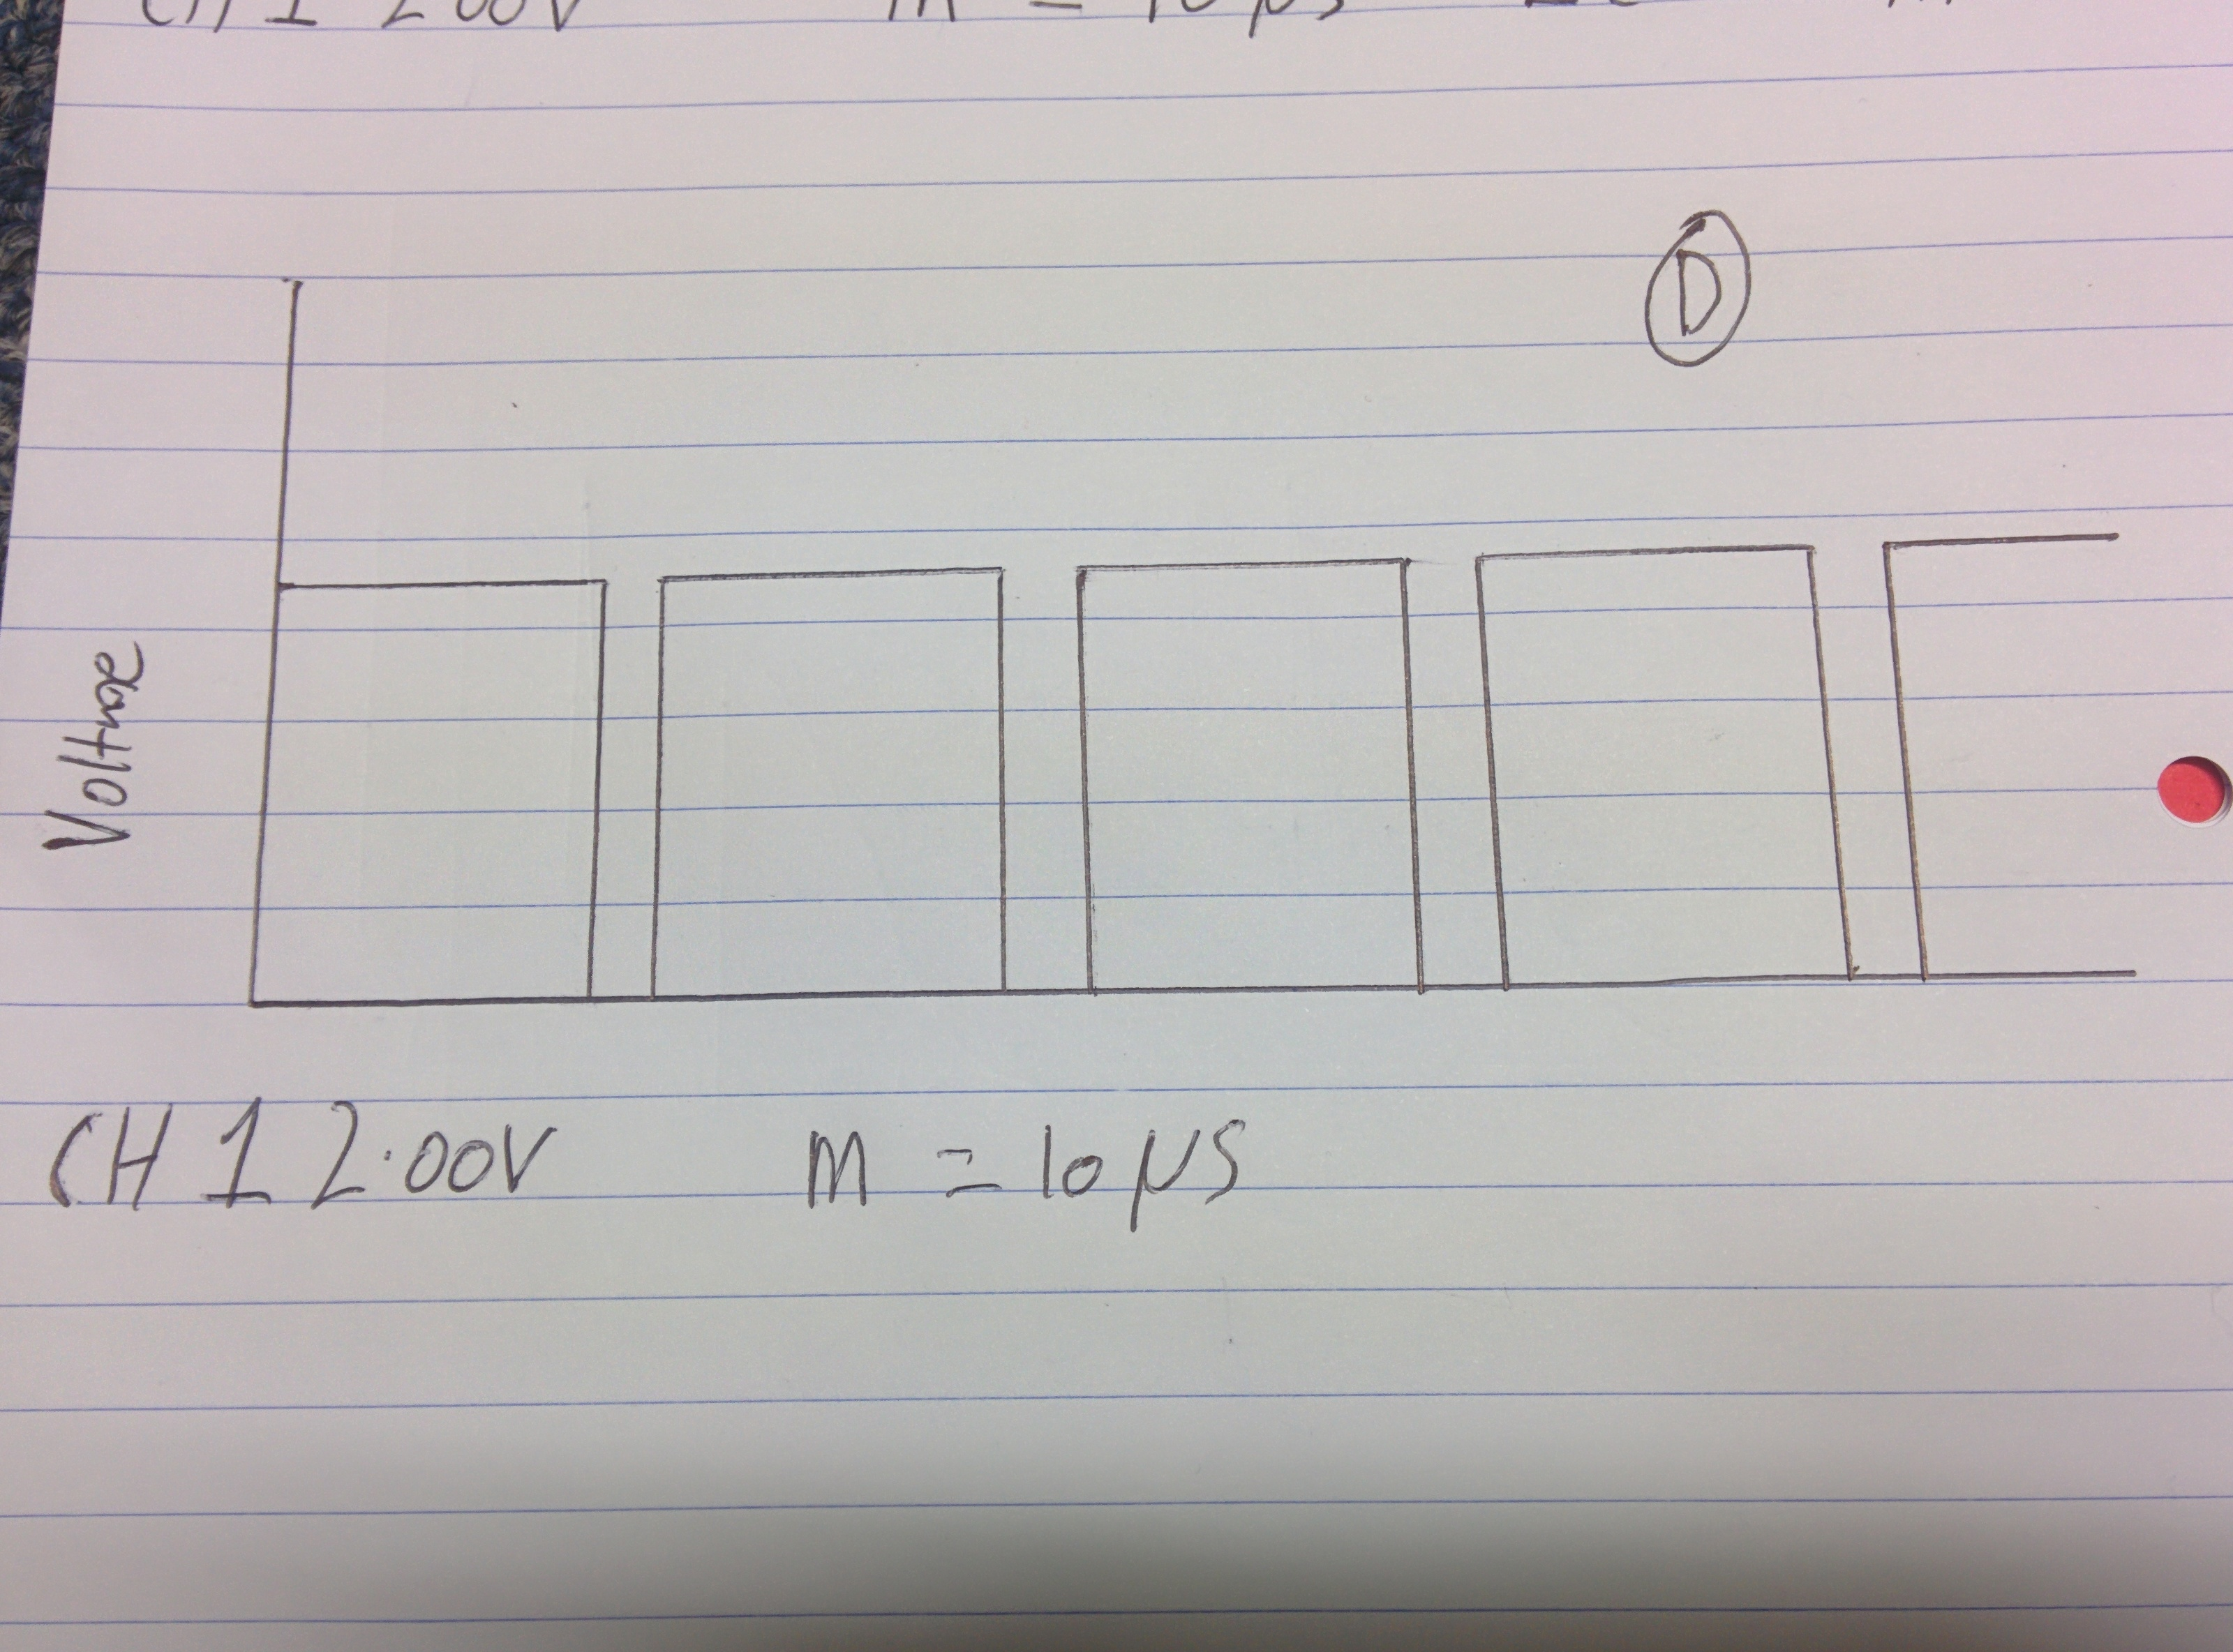 CH 1 2.00V M = 10 µs
D
Voltage
CH 1 2.00V M = 10 µS